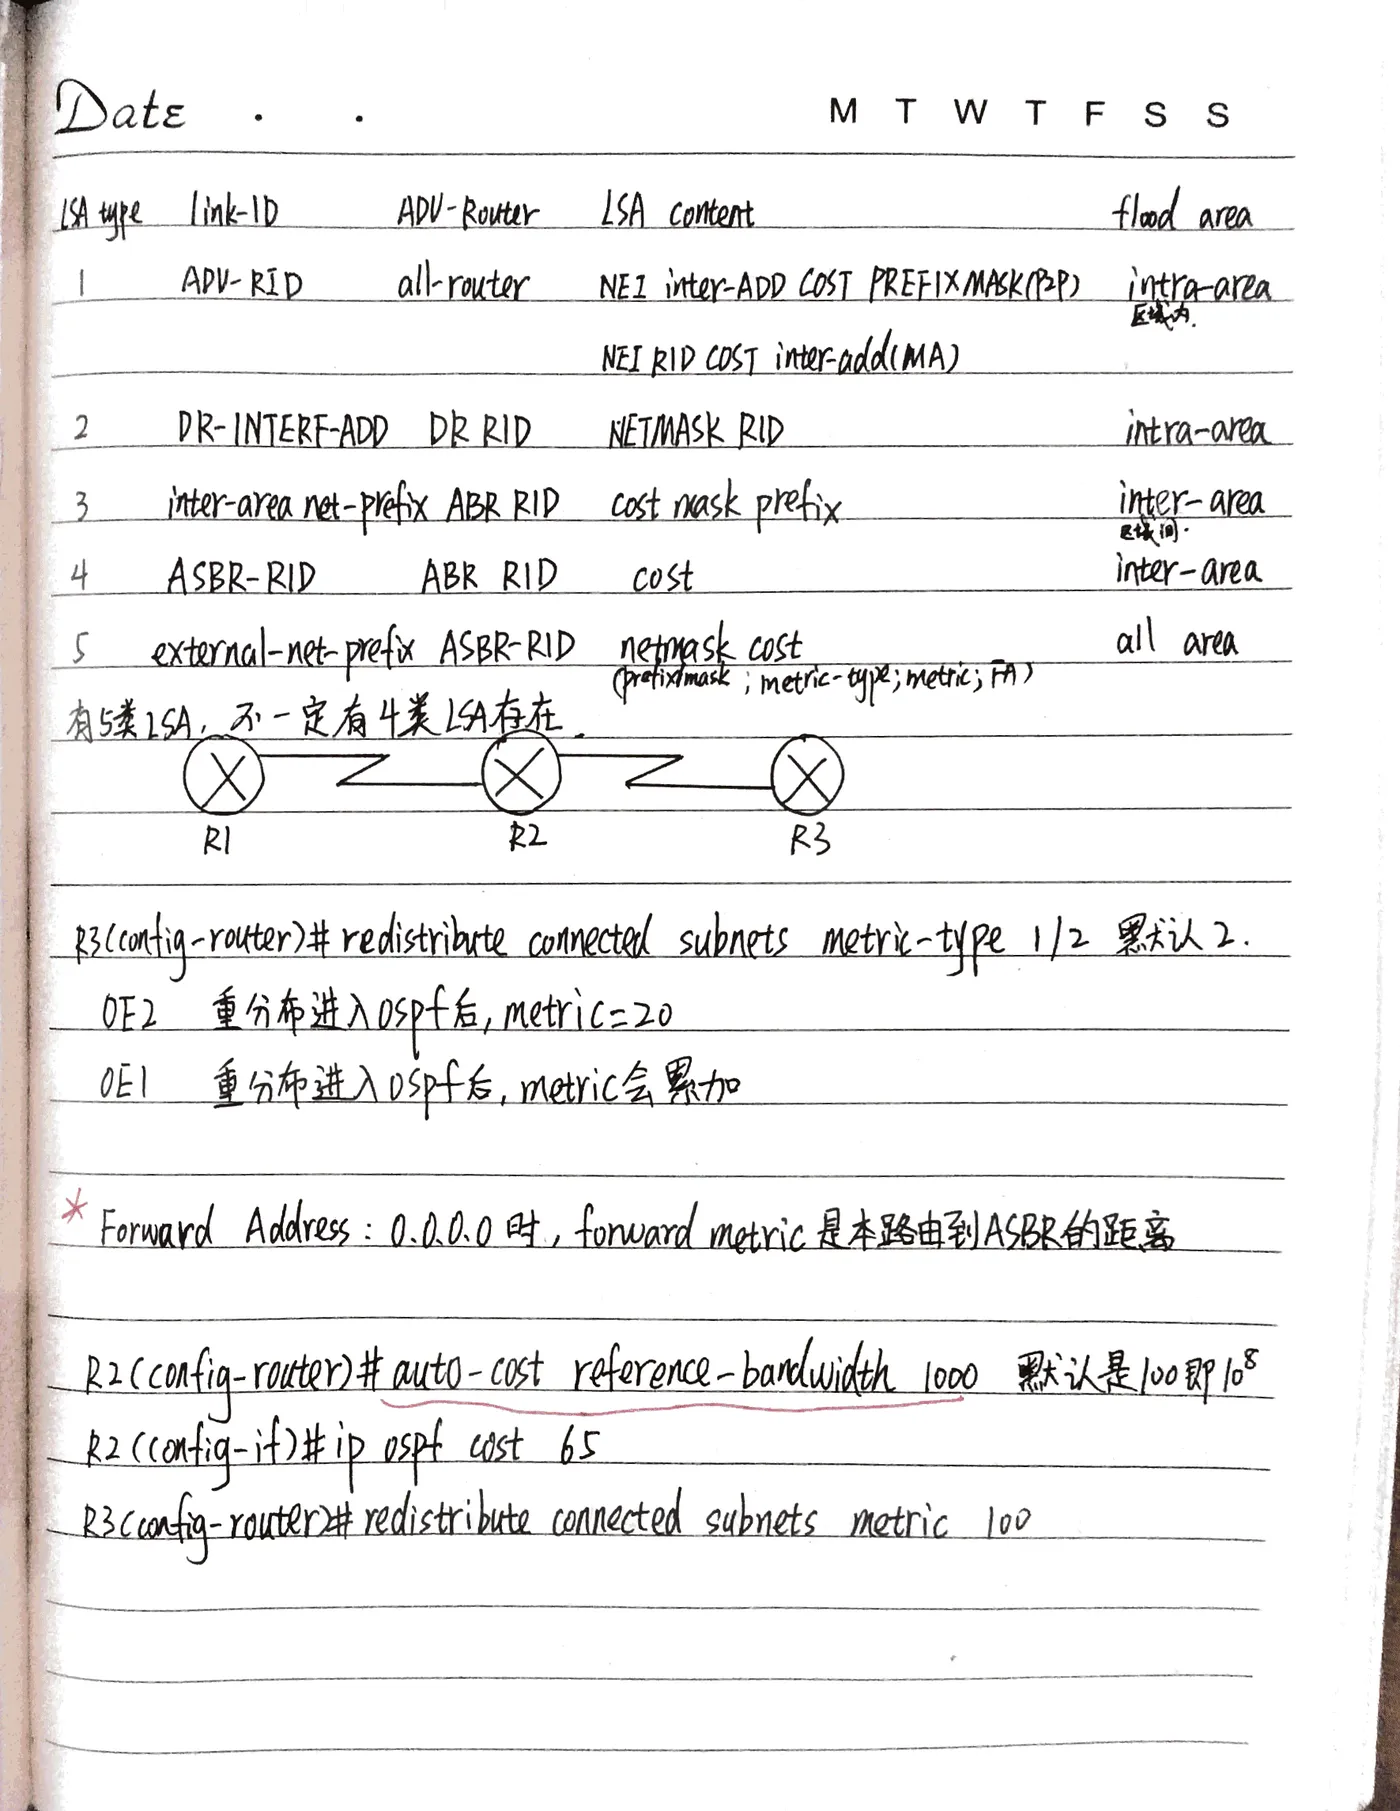 Date . .    M T W T F S S
LSA type link-ID ADV-Router LSA content flood area
1 ADV-RID all-router NEI inter-ADD COST PREFIX MASK(P2P) intra-area
区域内.
NEI RID COST inter-add(MA)
2 DR-INTERF-ADD DR RID NETMASK RID intra-area
3 inter-area net-prefix ABR RID cost mask prefix inter-area
区域间.
4 ASBR-RID ABR RID cost inter-area
5 external-net-prefix ASBR-RID netmask cost all area
(prefix/mask ; metric-type; metric; FA)
有5类LSA, 不一定有4类LSA存在.
R1 R2 R3
R3(config-router)# redistribute connected subnets metric-type 1/2 默认2.
OE2 重分布进入ospf后, metric=20
OE1 重分布进入ospf后, metric会累加
* Forward Address: 0.0.0.0时, forward metric是本路由到ASBR的距离
R2(config-router)# auto-cost reference-bandwidth 1000 默认是100即10⁸
R2(config-if)# ip ospf cost 65
R3(config-router)# redistribute connected subnets metric 100